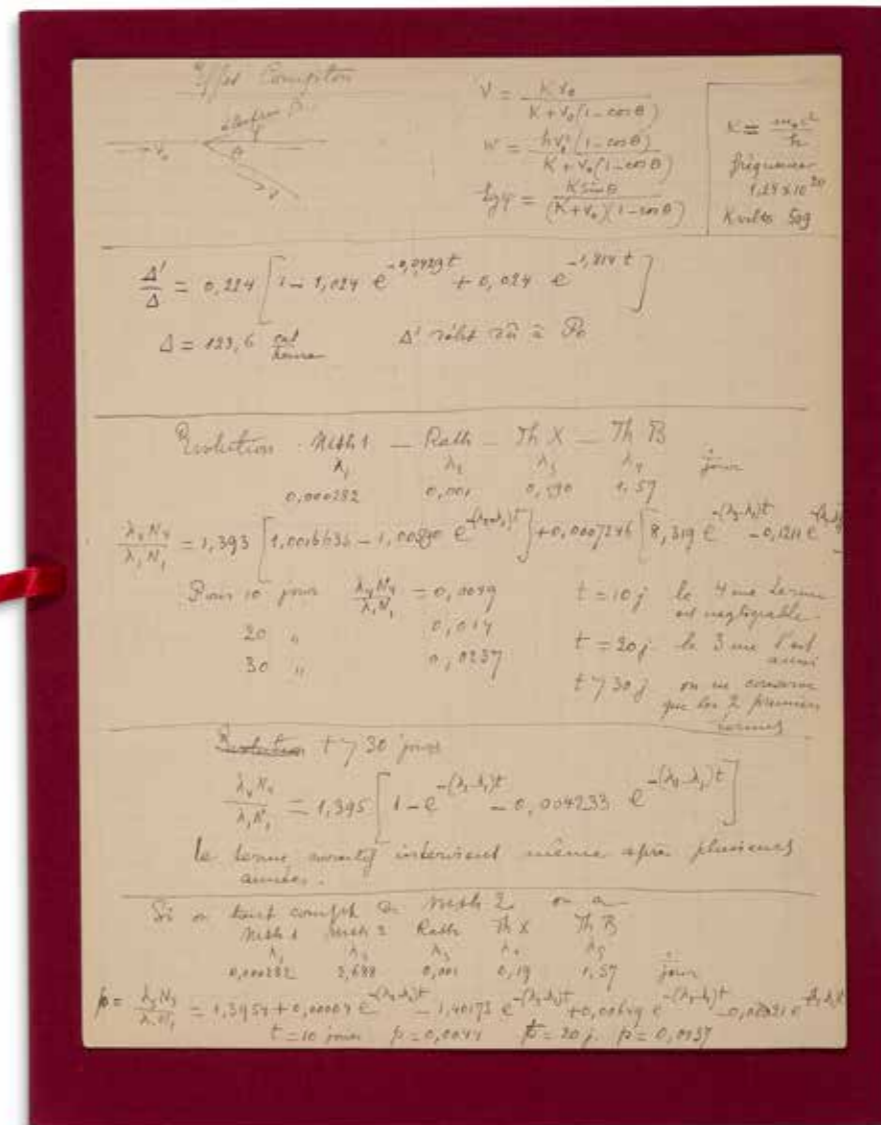 Effet Compton
électron
→ ν₀
φ
θ
ν
ν = K ν₀ / K + ν₀(1 - cos θ)
w = hν₀²(1 - cos θ) / K + ν₀(1 - cos θ)
tg φ = K sin θ / (K + ν₀)(1 - cos θ)
K = m₀c² / h
fréquence
1,24 x 10²⁰
K volts 509
Δ'/Δ = 0,224 [1 - 1,024 e^(-0,0429 t) + 0,024 e^(-1,814 t)]
Δ = 123,6 cal/heure Δ' débit dû à Po
Evolution Msth 1 — Rath — Th X — Th B
λ₁ λ₂ λ₃ λ₄ 1/jour
0,000282 0,001 0,190 1,57
λ₄N₄/λ₁N₁ = 1,393 [1,0016636 - 1,00590 e^(-(λ₂-λ₁)t)] + 0,0007246 [8,319 e^(-(λ₃-λ₁)t) - 0,1211 e
Pour 10 jours λ₄N₄/λ₁N₁ = 0,0049 t = 10 j le 4me terme
est négligeable.
20 " 0,014 t = 20 j le 3me l'est
aussi
30 " 0,0237
t > 30 j on ne conserve
que les 2 premiers
termes
Evolution t > 30 jours
λ₄N₄/λ₁N₁ = 1,395 [1 - e^(-(λ₂-λ₁)t) - 0,004233 e^(-(λ₂-λ₁)t)]
le terme correctif intervient même après plusieurs
années.
Si on tient compte de Msth 2 on a
Msth 1 Msth 2 Rath Th X Th B
λ₁ λ₂ λ₃ λ₄ λ₅
0,000282 2,688 0,001 0,19 1,57 1/jour
p = λ₅N₅/λ₁N₁ = 1,3954 + 0,00004 e^(-(λ₂-λ₁)t) - 1,40173 e^(-(λ₃-λ₁)t) + 0,00649 e^(-(λ₄-λ₁)t) - 0,00021 e
t = 10 jours p = 0,0044 t = 20 j. p = 0,0137